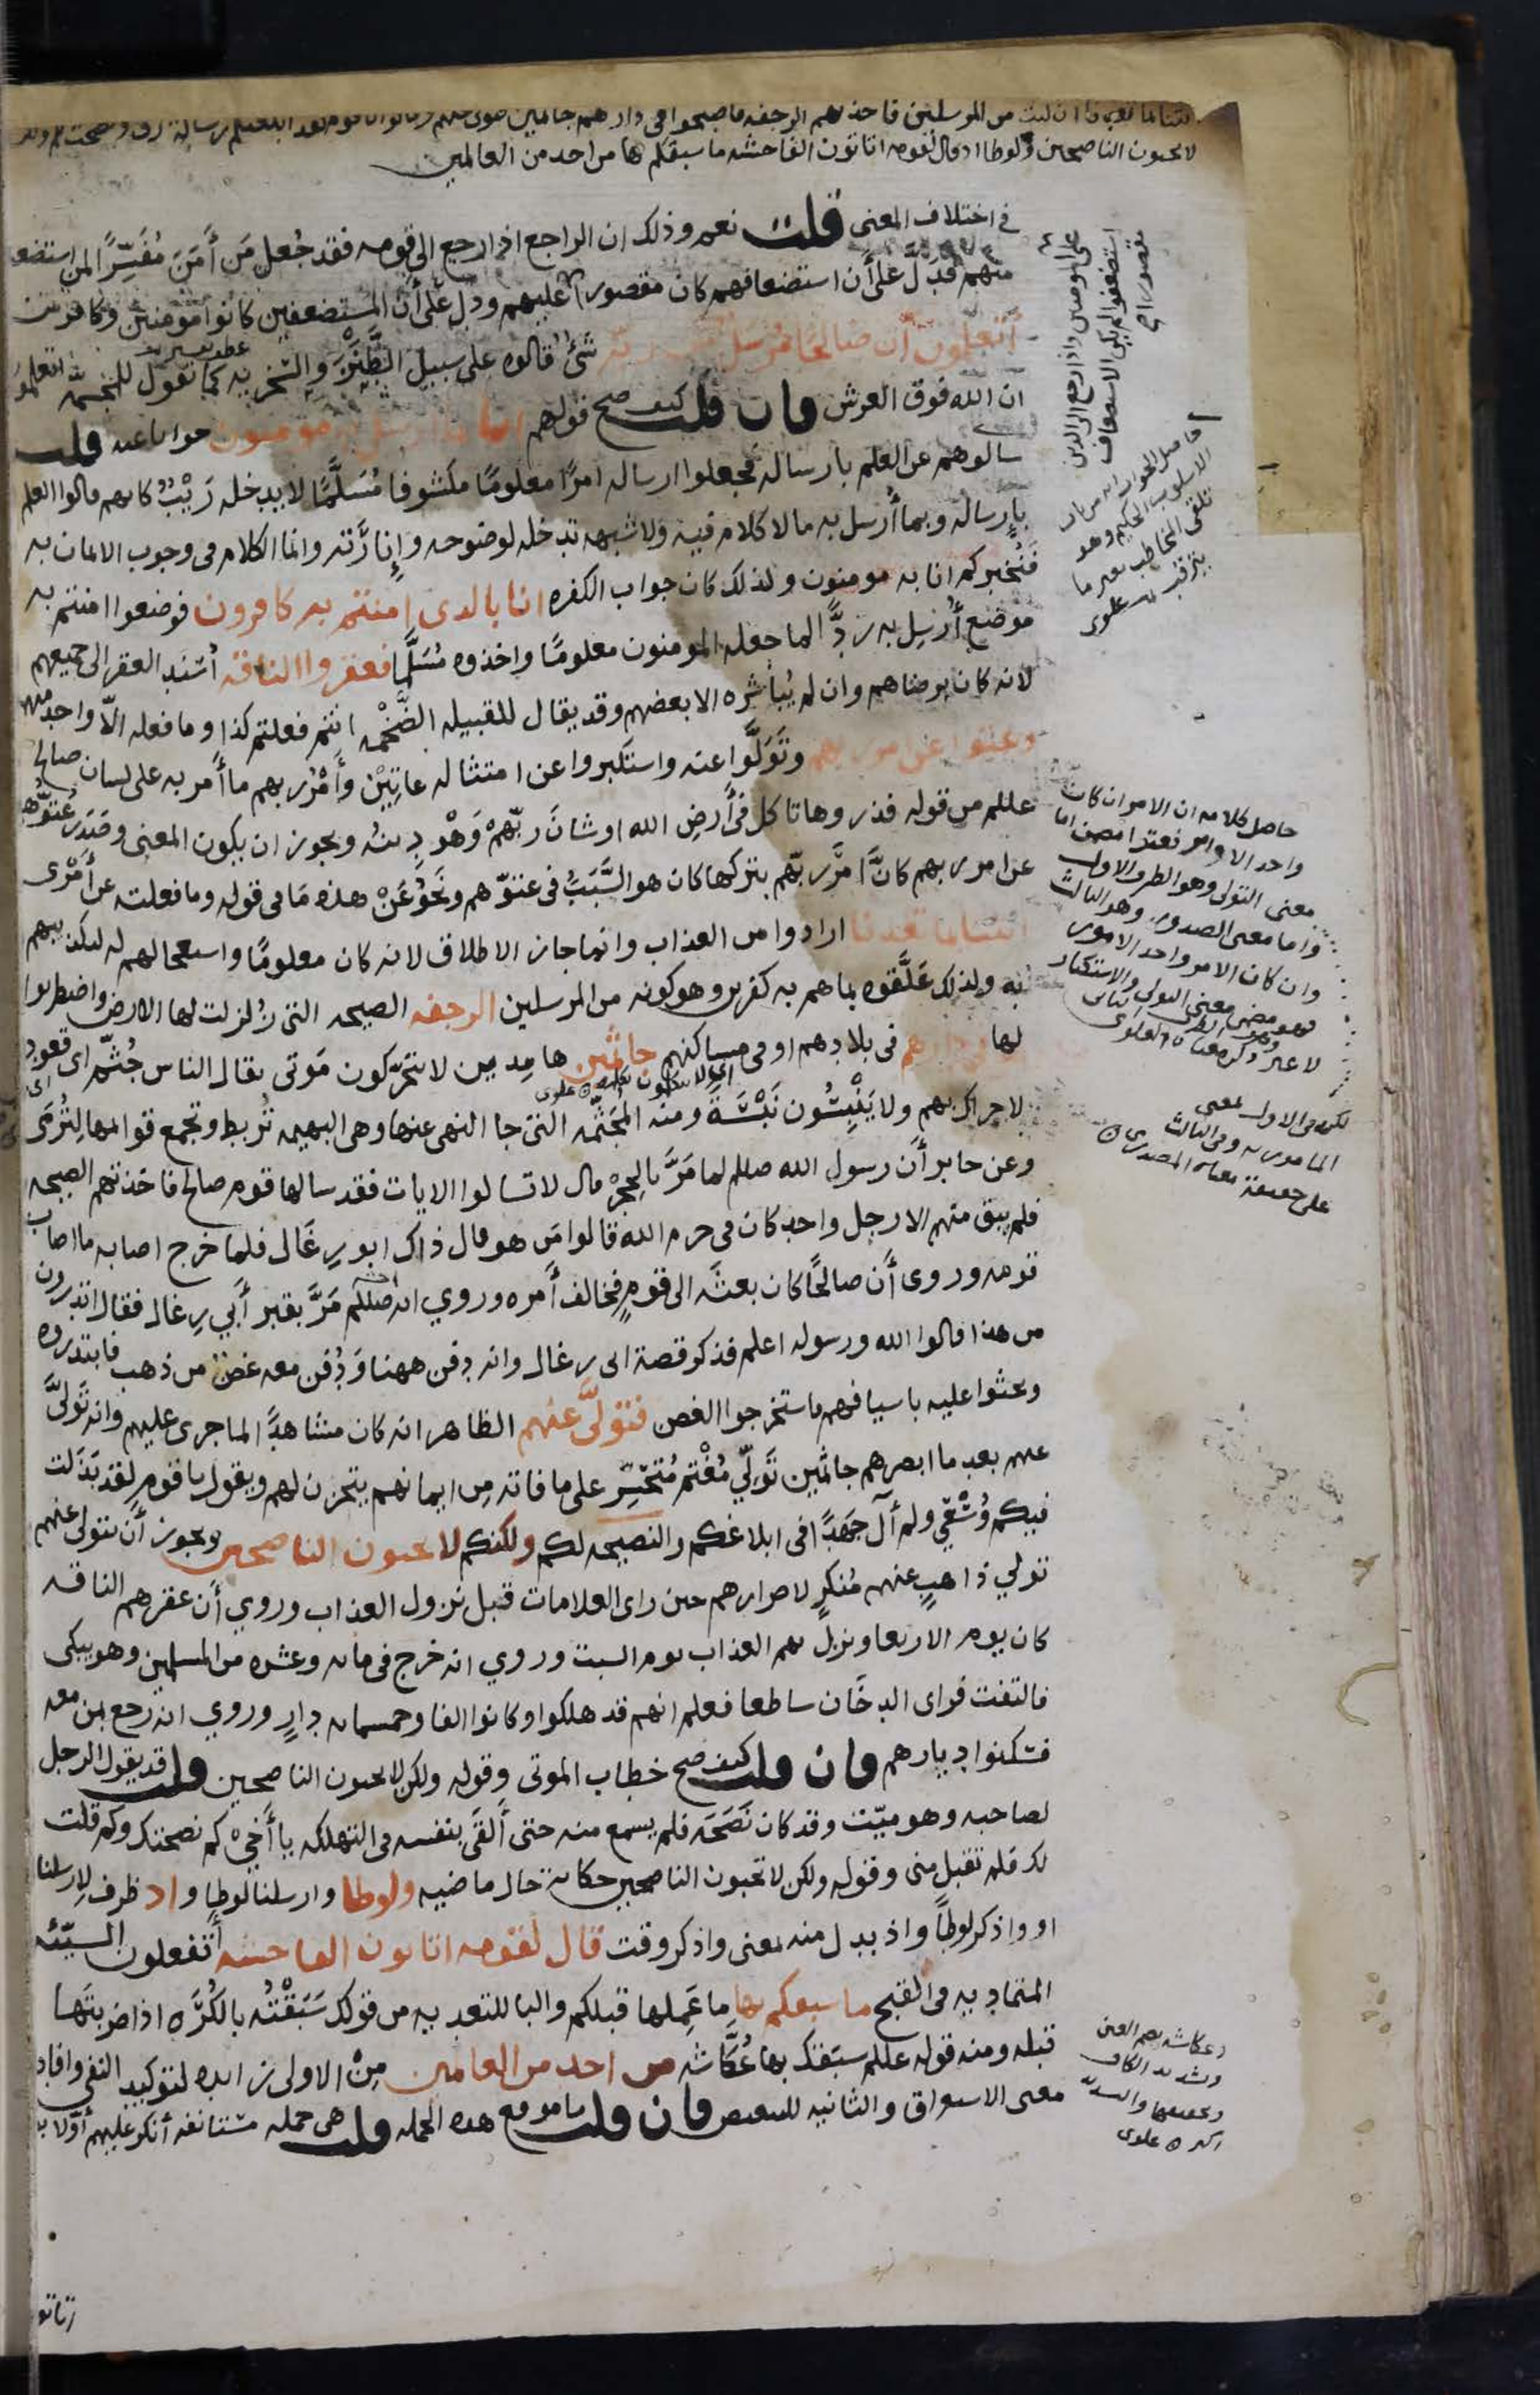 ائتنا بما تعدنا ان كنت من المرسلين فاخذتهم الرجفه فاصبحوا في دارهم جاثمين فتولى عنهم وقال يا قوم لقد ابلغتكم رسالة ربي ونصحت لكم ولكن
لا تحبون الناصحين ولوطا اذ قال لقومه اتاتون الفاحشه ما سبقكم بها من احد من العالمين
في اختلاف المعنى قلت نعم وذلك ان الراجع اذا رجع الى قومه فقد جُعل مَن أَمَنَ مُفَسِّرًا لمن استضعف
منهم فدَلَّ على أَن استضعافهم كان مقصورا عليهم ودل على أن المستضعفين كانوا مومنين وكافرين
أتعلمون أن صالحًا مُرسَل من ربه شئ قالوه على سبيل الطَّنْزِ والسخريه كما تقول للمجسمة اتعلمون
ان الله فوق العرش فان قلت كيف صح قولهم انا بما ارسل به مومنون جوابا عنه قلت
سالوهم عن العلم بارساله فجعلوا ارساله امرًا معلومًا مكشوفا مُسَلَّمًا لا يدخله رَيْبٌ كانهم قالوا العلم
بارساله وبما أُرسل به ما لا كلام فيه ولا شبهه تدخله لوضوحه وإنارَته وانما الكلام في وجوب الايمان به
فنُخبركم انا به مومنون ولذلك كان جواب الكفره انا بالذي امنتم به كافرون فوضعوا امنتم به
موضع أُرسِل به ردًّا لما جعله المومنون معلومًا واخذوه مُسَلَّمًا فعقروا الناقه أُسند العقر الى جميعهم
لانه كان برضاهم وان لم يُباشره الا بعضهم وقد يقال للقبيله الضَّخْمه انتم فعلتم كذا وما فعله الّا واحد منهم
وعتوا عن امر ربهم وتَوَلَّوا عنه واستكبروا عن امتثاله عاتِيْن وأَمْرُ ربهم ما أُمر به على لسان صالح
عللم من قوله فذروها تاكل في أَرضِ الله او شانَ ربّهمْ وَهْو دِينه ويجوز ان يكون المعنى وصَدَرَ عُتُوّهم
عن امر ربهم كانَّ امرَ ربّهم بتركها كان هو السَّبَبَ في عتوّهم ونَحوُ عَنْ هذه مَا في قوله وما فعلته عن أَمْرى
ائتنا بما تعدنا ارادوا من العذاب وانما جاز الاطلاق لانه كان معلومًا واستعجالهم له لتكذيبهم
به ولذلك عَلَّقوه بما هم به كفرين وهو كونه من المرسلين الرجفه الصيحه التي زُلزلت لها الارض واضطربوا
لها في دارهم في بلادهم او في مساكنهم جاثمين هامِدين لا يتحرّكون مَوتى يقال الناس جُثّم اي قعود
لا حراك بهم ولا يَنْبِسُون نَبْسَةً ومنه المُجَثَّمه التي جا النهى عنها وهي البهيمه تُربط وتجمع قوايمها لتُرمَى
وعن جابر أن رسول الله صللم لما مَرَّ بالحِجْر قال لا تسالوا الايات فقد سالها قوم صالح فاخذتهم الصيحه
فلم يبق منهم الا رجل واحد كان في حرم الله قالوا مَن هو قال ذاك ابو رِغَال فلما خرج اصابه ما اصاب
قومه وروى أَن صالحًا كان بعثَه الى قومٍ فخالف أَمره وروي انه صللم مَرَّ بقبر أَبي رِغال فقال اتدرون
من هذا قالوا الله ورسوله اعلم فذكر قصة ابى رغال وانه دفن ههنا وَدُفن معه غصن من ذهب فابتدروه
وبحثوا عليه باسيافهم فاستخرجوا الغصن فتولَّى عنهم الظاهر انه كان مشاهدًا لما جرى عليهم وانه تولَّى
عنهم بعد ما ابصرهم جاثمين تَولِّي مُغْتَم مُتحَسّر على ما فاته مِن ايمانهم يتحزن لهم ويقول يا قوم لقد بَذَلت
فيكم وُسْعِي ولم آل جَهْدًا في ابلاغكم والنصيحه لكم ولكنكم لا تحبون الناصحين ويجوز أَن يتولى عنهم
تولي ذاهبٍ عنهم مُنكرٍ لاصرارهم حين راى العلامات قبل نزول العذاب وروي أَن عقرهم الناقه
كان يوم الاربعا ونزل بهم العذاب يوم السبت وروي انه خرج في مايه وعشره من المسلمين وهو يبكى
فالتفت فراى الدخان ساطعا فعلم انهم قد هلكوا وكانوا الفا وخمسمايه دارٍ وروي انه رجع بمن معه
فسكنوا ديارهم فان قلت كيف صح خطاب الموتى وقوله ولكن لا تحبون الناصحين قلت قد يقول الرجل
لصاحبه وهو ميّت وقد كان نَصَحَه فلم يسمع منه حتى أَلقَى بنفسه في التهلكه يا أَخي كم نصحتك وكم قلت
لك فلم تقبل مني وقوله ولكن لا تحبون الناصحين حكاية حال ماضيه ولوطا وارسلنا لوطا واذ ظرف لارسلنا
او واذكر لوطاً واذ بدل منه بمعنى واذكر وقت قال لقومه اتاتون الفاحشه أَتفعلون السيّئه
المتماديه في القبح ما سبقكم بها ما عَمِلها قبلكم والبا للتعديه من قولك سَبَقْتُه بالكُرَه اذا ضربتَها
قبله ومنه قوله عللم سبقك بها عُكَّاشه من احد من العالمين مِنْ الاولى زايده لتوكيد النفي وافاده
معنى الاستغراق والثانيه للتبعيض فان قلت ما موقع هذه الجمله قلت هي جمله مستانفه أنكر عليهم أَوّلا
حاصل كلامه ان الامر ان كان
واحد الاوامر فعتوا مضمن اما
معنى التولى وهو الطرف الاول
واما معنى الصدور وهو الثالث
وان كان الامر واحد الامور
فهو مضمن معنى التولى والاستكبار
لكنه في الاول بمعنى
المامور به وفي الثالث
على حقيقة معناه المصدري
وعكاشه بضم العين
وتشديد الكاف
وتخفيفها والتشديد
اكثر علوى